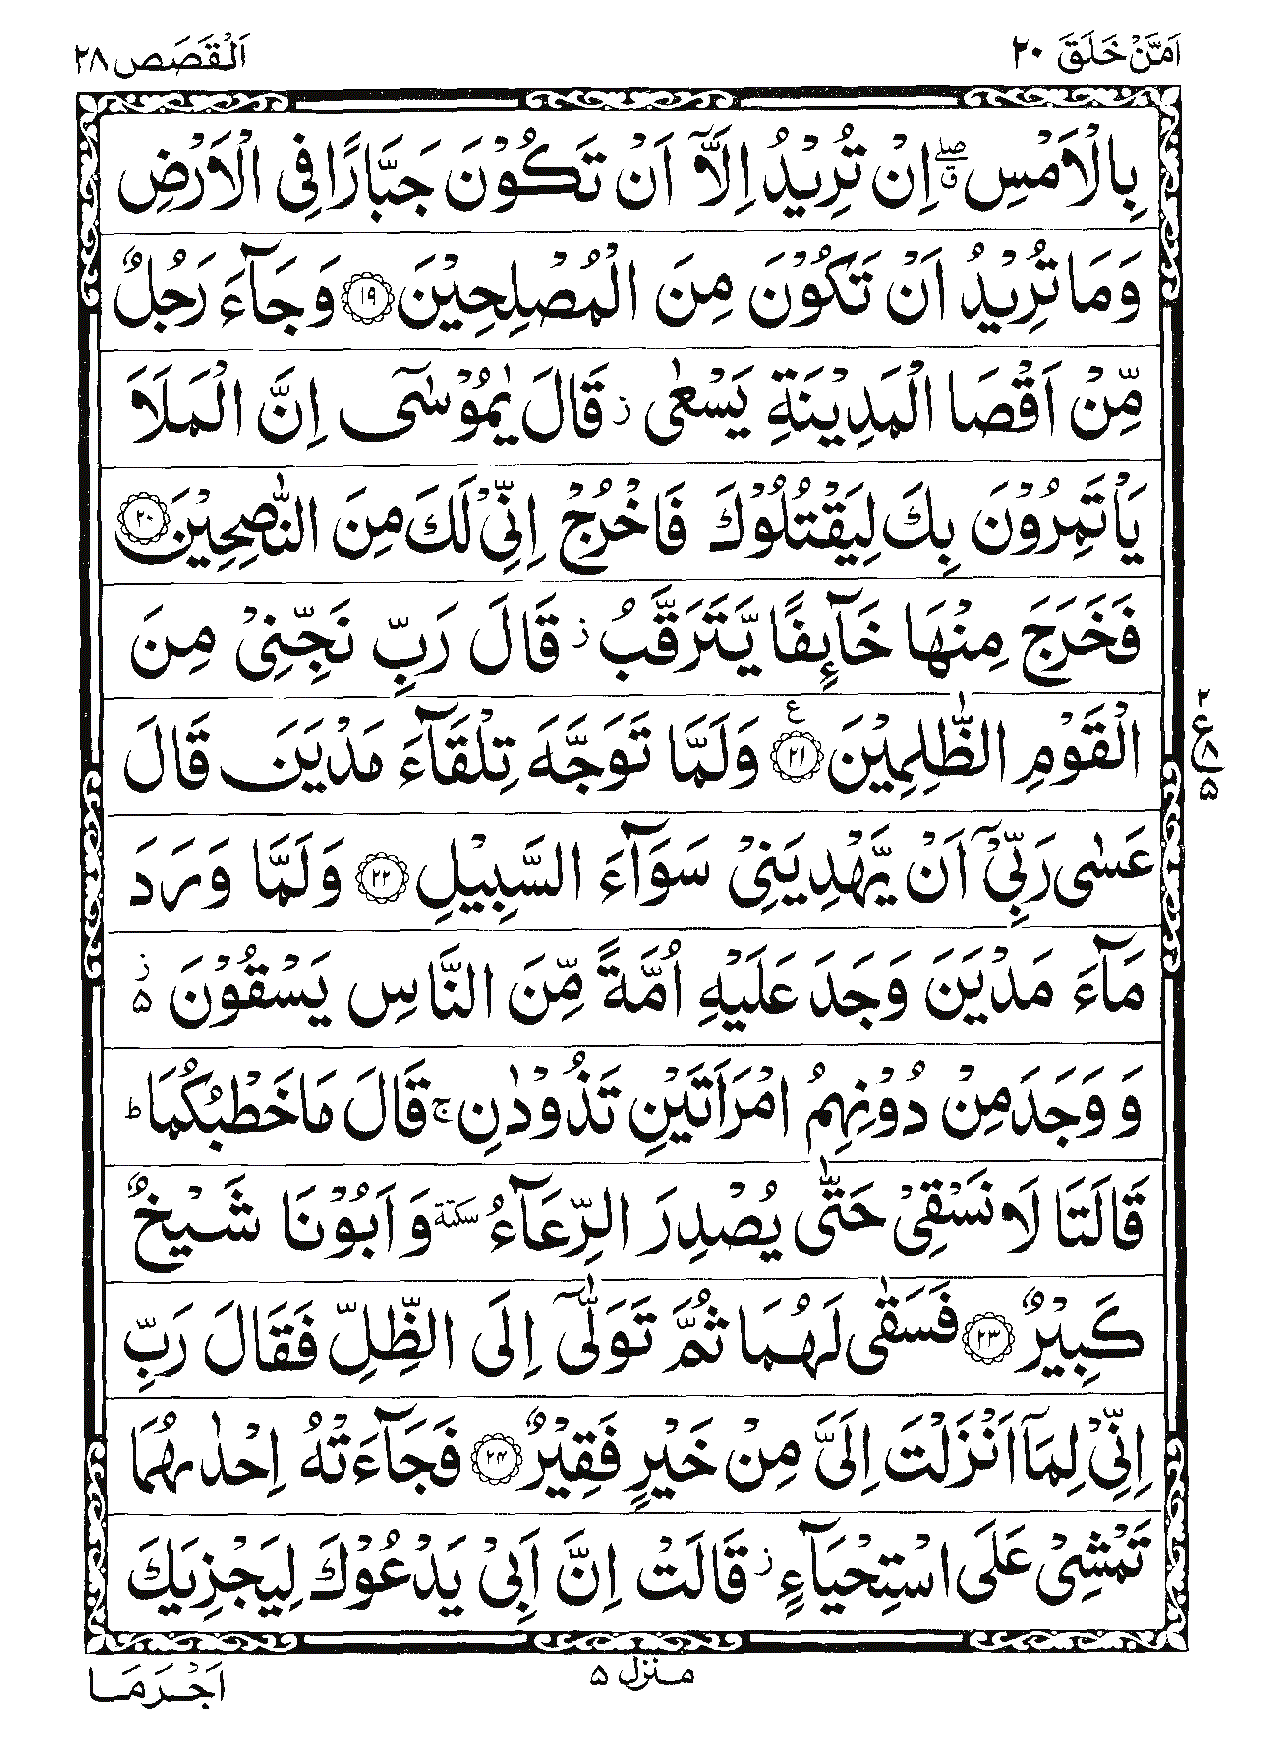 اَمَّنْ خَلَقَ ٢٠
اَلْقَصَص ٢٨
بِالْاَمْسِ ۖۗ اِنْ تُرِيْدُ اِلَّاۤ اَنْ تَكُوْنَ جَبَّارًا فِى الْاَرْضِ
وَمَا تُرِيْدُ اَنْ تَكُوْنَ مِنَ الْمُصْلِحِيْنَ ﴿١٩﴾ وَجَآءَ رَجُلٌ
مِّنْ اَقْصَا الْمَدِيْنَةِ يَسْعٰى ز قَالَ يٰمُوْسٰٓى اِنَّ الْمَلَاَ
يَاْتَمِرُوْنَ بِكَ لِيَقْتُلُوْكَ فَاخْرُجْ اِنِّىْ لَكَ مِنَ النّٰصِحِيْنَ ﴿٢٠﴾
فَخَرَجَ مِنْهَا خَآئِفًا يَّتَرَقَّبُ ز قَالَ رَبِّ نَجِّنِىْ مِنَ
الْقَوْمِ الظّٰلِمِيْنَ ﴿٢١﴾ ع وَلَمَّا تَوَجَّهَ تِلْقَآءَ مَدْيَنَ قَالَ
٢ ع ٨ ٥
عَسٰى رَبِّىْۤ اَنْ يَّهْدِيَنِىْ سَوَآءَ السَّبِيْلِ ﴿٢٢﴾ وَلَمَّا وَرَدَ
مَآءَ مَدْيَنَ وَجَدَ عَلَيْهِ اُمَّةً مِّنَ النَّاسِ يَسْقُوْنَ ز ٥
وَ وَجَدَ مِنْ دُوْنِهِمُ امْرَاَتَيْنِ تَذُوْدٰنِ ج قَالَ مَا خَطْبُكُمَا ط
قَالَتَا لَا نَسْقِىْ حَتّٰى يُصْدِرَ الرِّعَآءُ سكتة وَاَبُوْنَا شَيْخٌ
كَبِيْرٌ ﴿٢٣﴾ فَسَقٰى لَهُمَا ثُمَّ تَوَلّٰىۤ اِلَى الظِّلِّ فَقَالَ رَبِّ
اِنِّىْ لِمَاۤ اَنْزَلْتَ اِلَىَّ مِنْ خَيْرٍ فَقِيْرٌ ﴿٢٤﴾ فَجَآءَتْهُ اِحْدٰىهُمَا
تَمْشِىْ عَلَى اسْتِحْيَآءٍ ز قَالَتْ اِنَّ اَبِىْ يَدْعُوْكَ لِيَجْزِيَكَ
منزل ٥
اَجْرَ مَا